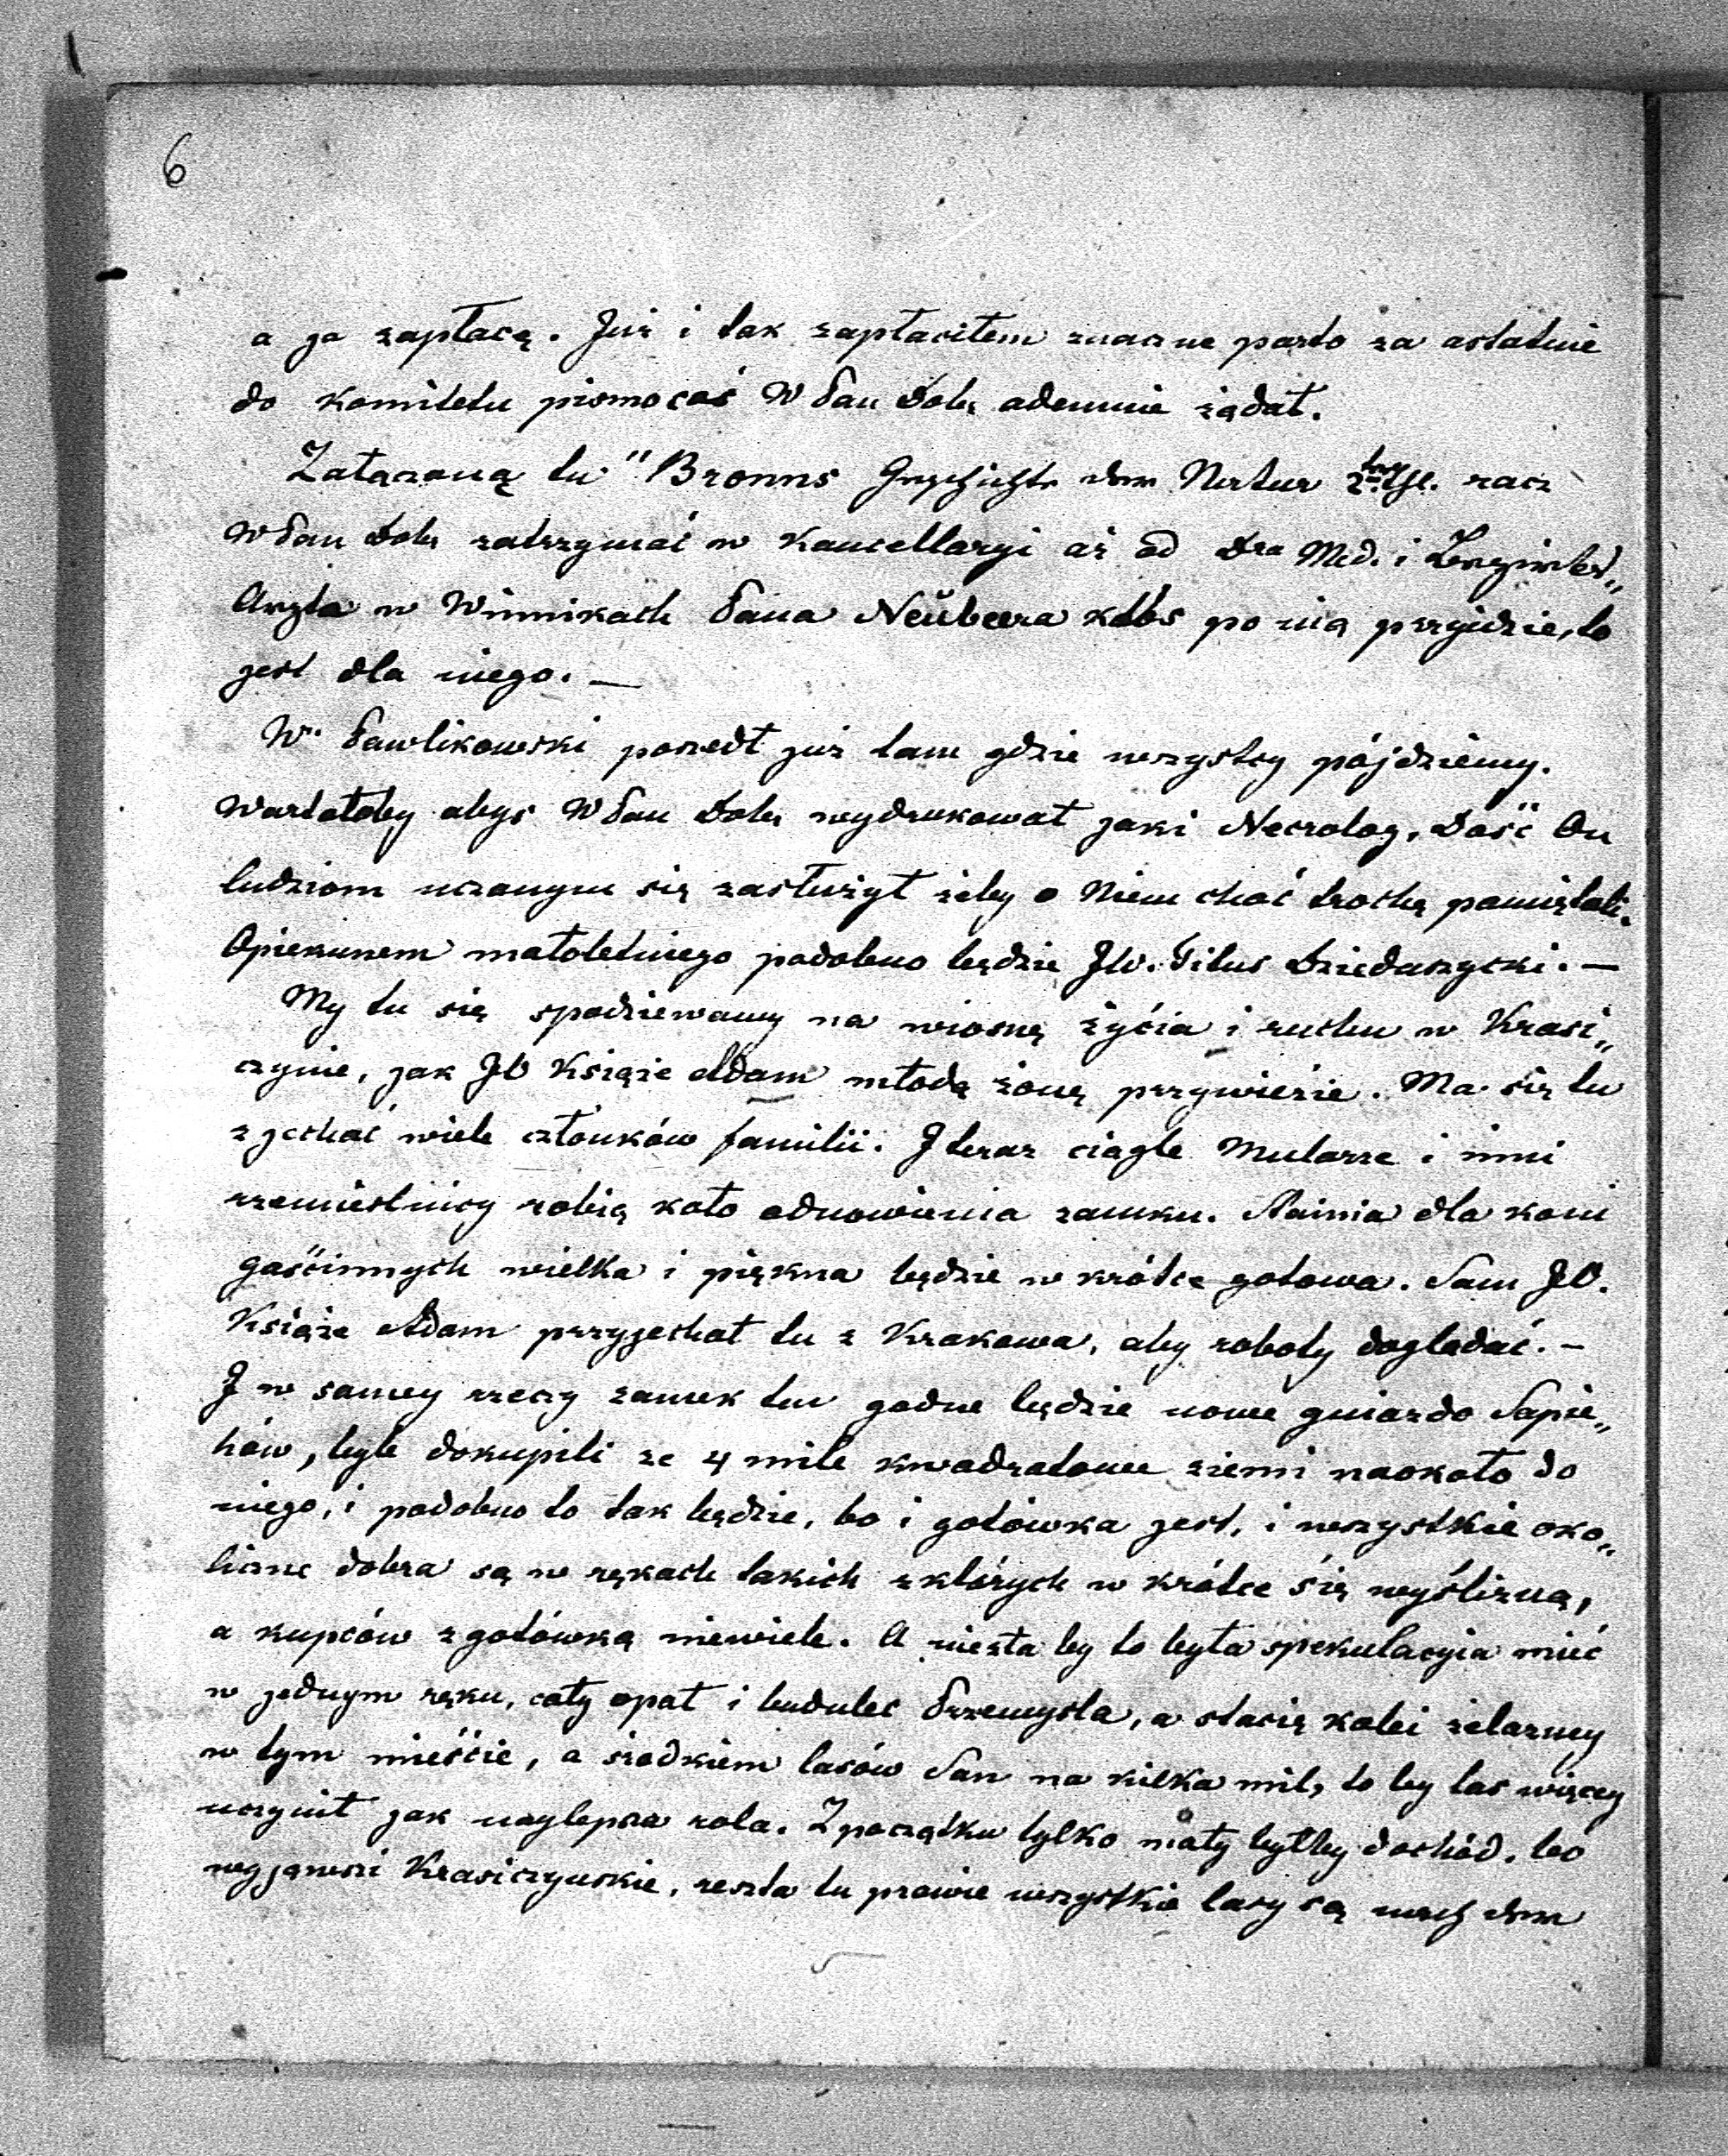 6
a ja zapłacę. Już i tak zapłaciłem znaczne porto za ostatnie
do Komitetu pismo coś WPan Dobr odemnie żądał.
Załączoną tu "Bronns Geschichte der Natur 2ter Thl. racz
WPan Dobr zatrzymać w Kancellaryi aż od Dra Med. i Bezirks„
Arzta w Winnikach Pana Neübeera ktoś po nią przyidzie, to
jest dla niego. —
W. Pawlikowski poszedł już tam gdzie wszystcy pójdziemy.
Wartałoby abyś WPan Dobr wydrukował jaki Necrolog, Dość On
ludziom uczonym się zasłużył żeby o Niem choć trochę pamiętali.
Opiekunem małoletniego podobno będzie JW. Titus Dzieduszycki. —
My tu się spodziewamy na wiosnę życia i ruchu w Krasi„
czynie, jak JO Książe Adam młodą żonę przywiezie. Ma się tu
zjechać wiele członków familii. I teraz ciągle Mularze i inni
rzemieślnicy robią koło odnowienia zamku. Stainia dla koni
gościnnych wielka i piękna będzie w krótce gotowa. Sam JO.
Książe Adam przyjechał tu z Krakowa, aby roboty doglądać. —
I w samey rzeczy zamek ten godne będzie nowe gniazdo Sapie„
hów, byle dokupili ze 4 mile kwadratowe ziemi naokoło do
niego, i podobno to tak będzie, bo i gotówka jest, i wszystkie oko„
liczne dobra są w rękach takich z których w krótce się wyślizną,
a kupców z gotówką niewiele. A niezła by to była spekulacyia mieć
w jednym ręku, cały opał i budulec Przemyśla, a stacię kolei żelazney
w tym mieście, a środkiem lasów San na kilka mil, to by las więcey
uczynił jak naylepsza rola. Z początku tylko mały byłby dochód, bo
wyjąwszi Krasiczyńskie, reszta tu prawie wszystkie lasy są nach dem